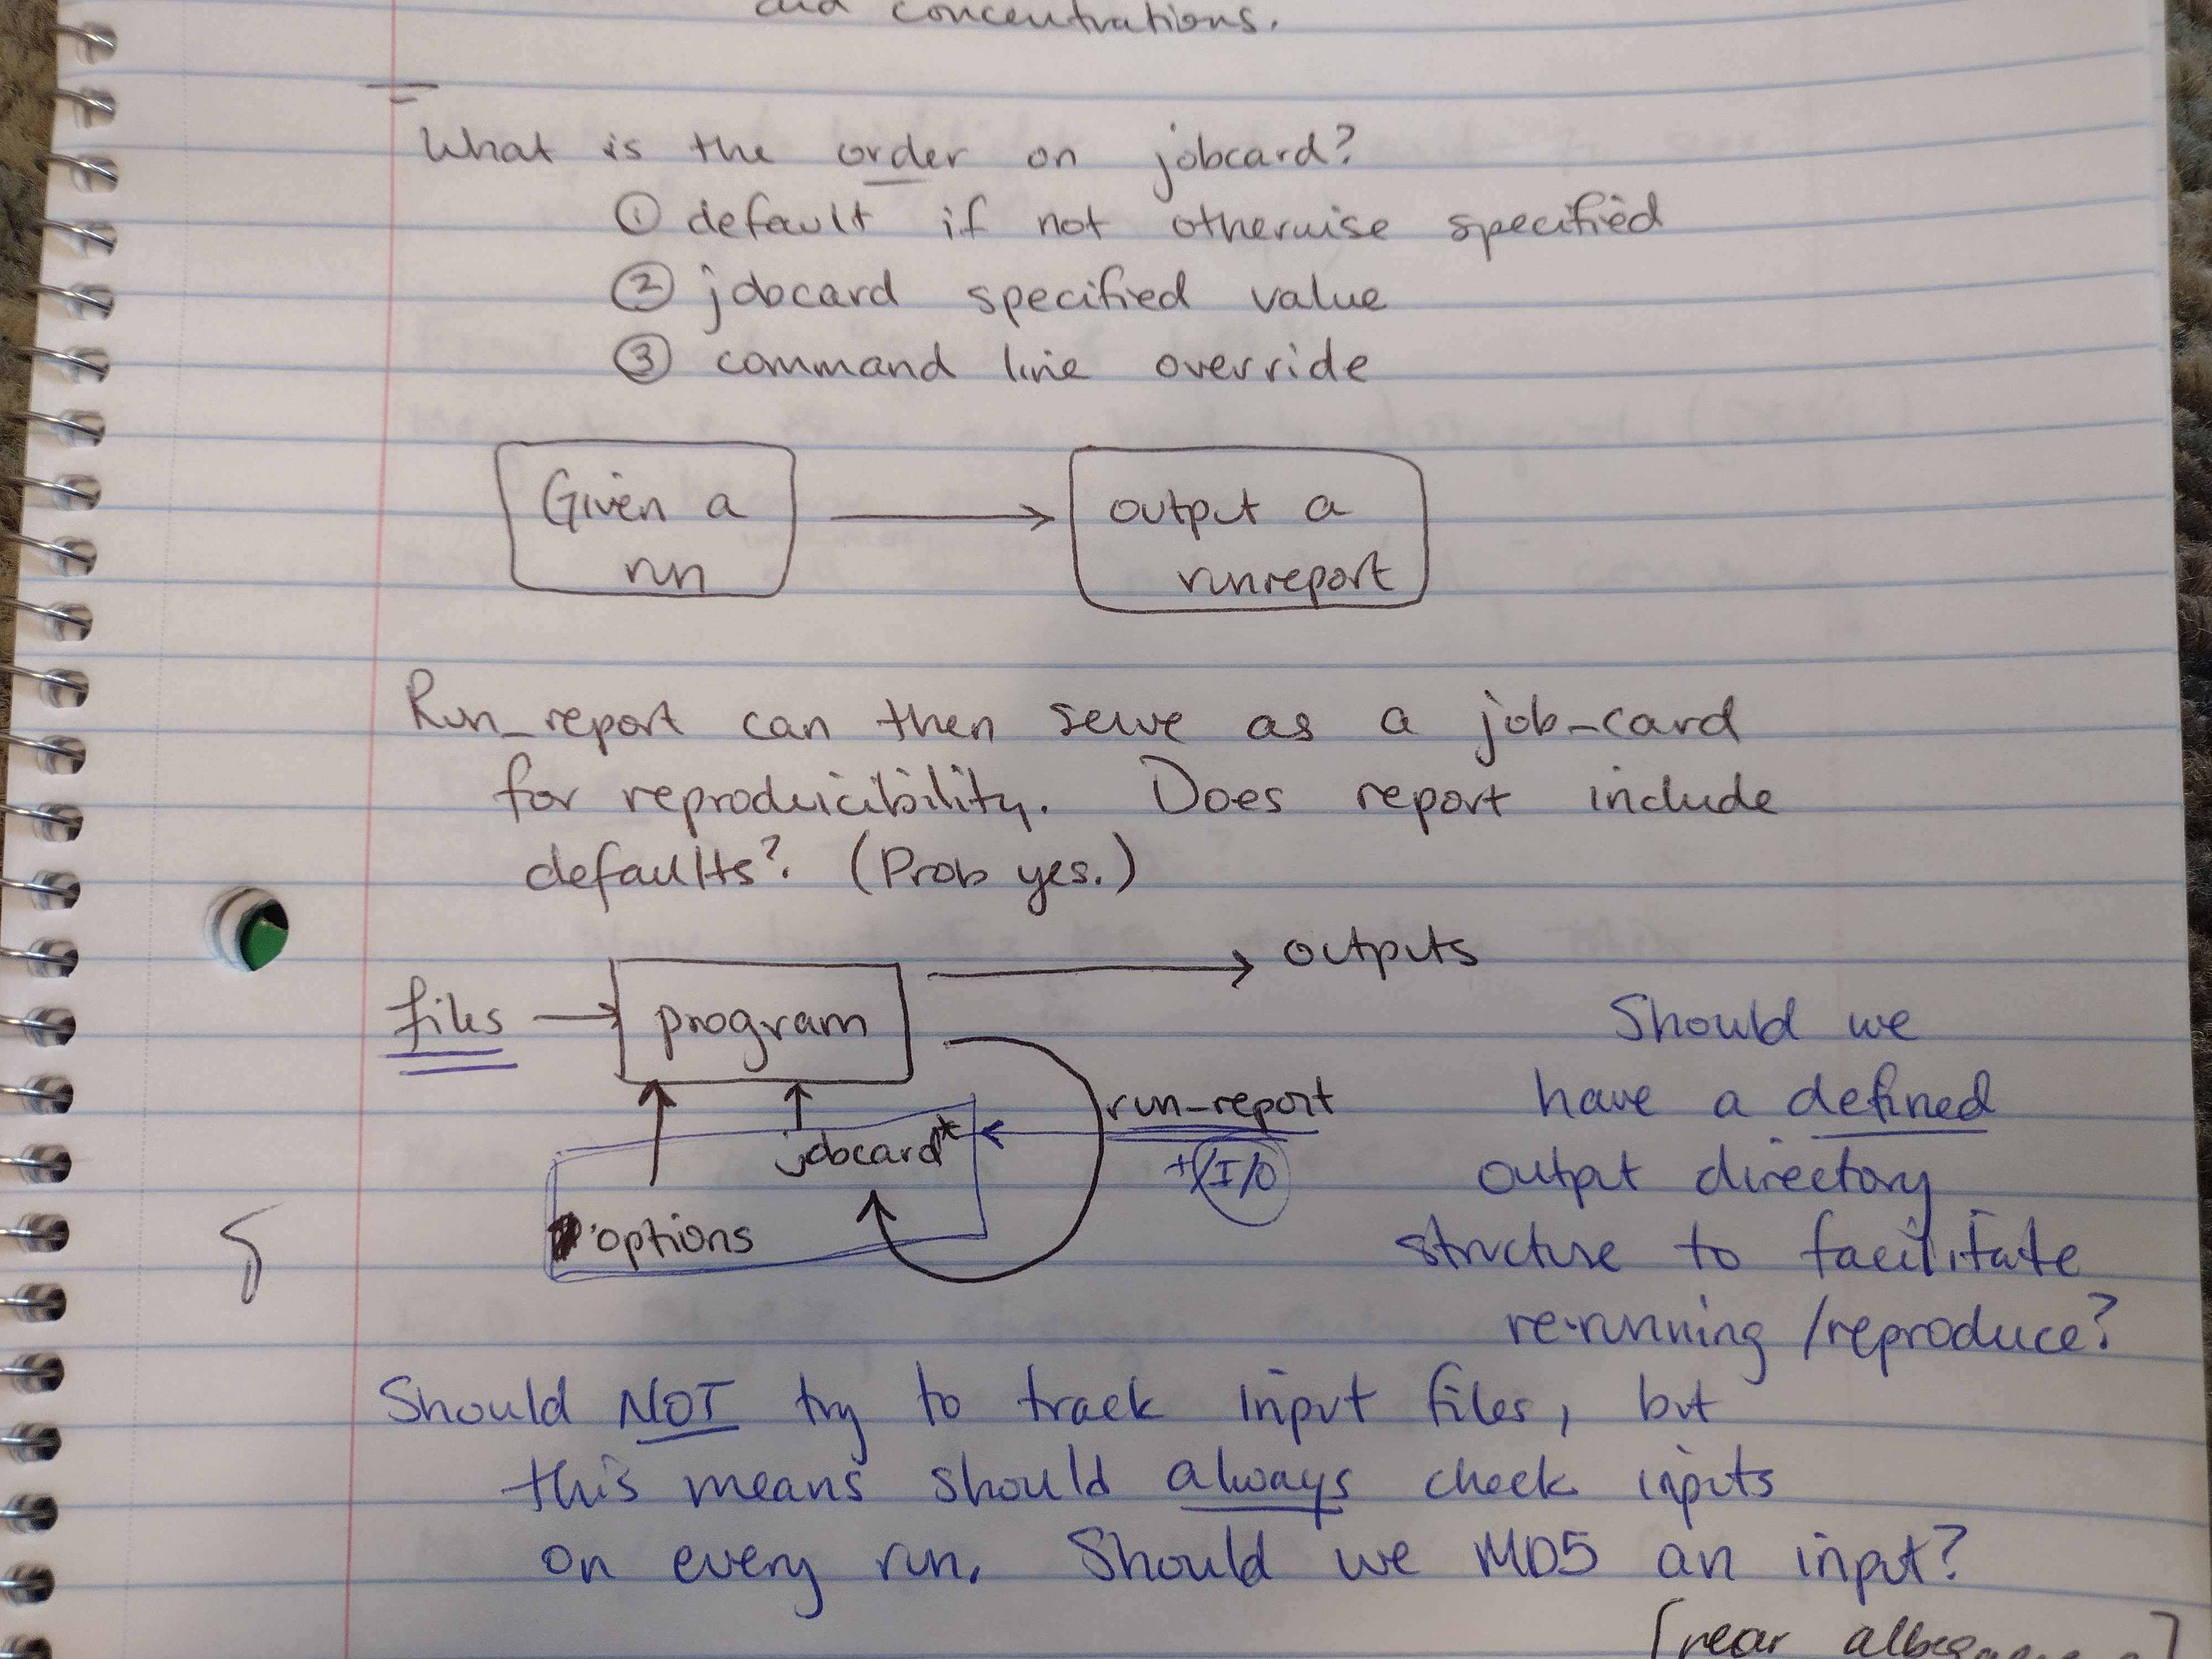 and concentrations.
What is the order on jobcard?
① default if not otherwise specified
② jobcard specified value
③ command line override
Given a
run
output a
runreport
Run_report can then serve as a job-card
for reproduicibility. Does report include
defaults? (Prob yes.)
outputs
files
program
run-report
+/I/O
jobcard*
options
Should we
have a defined
output directory
structure to facilitate
re-running/reproduce?
Should NOT try to track input files, but
this means should always check inputs
on every run. Should we MD5 an input?
[near